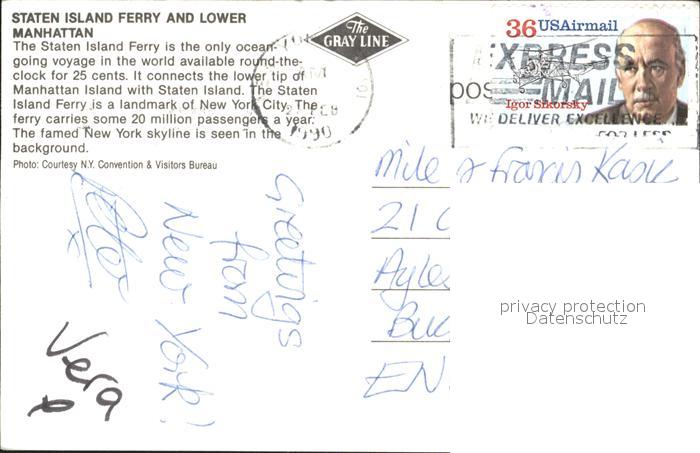 STATEN ISLAND FERRY AND LOWER
MANHATTAN
The Staten Island Ferry is the only ocean-
going voyage in the world available round-the-
clock for 25 cents. It connects the lower tip of
Manhattan Island with Staten Island. The Staten
Island Ferry is a landmark of New York City. The
ferry carries some 20 million passengers a year.
The famed New York skyline is seen in the
background.
Photo: Courtesy N.Y. Convention & Visitors Bureau
The
GRAY LINE
FEB
1990
36 USAirmail
Igor Sikorsky
EXPRESS
MAIL
WE DELIVER EXCELLENCE
FOR LESS
Greetings
from
New York!
Peter
x
Vera
x
Mile & Travis
21
Ayles
Buc
EN
privacy protection
Datenschutz